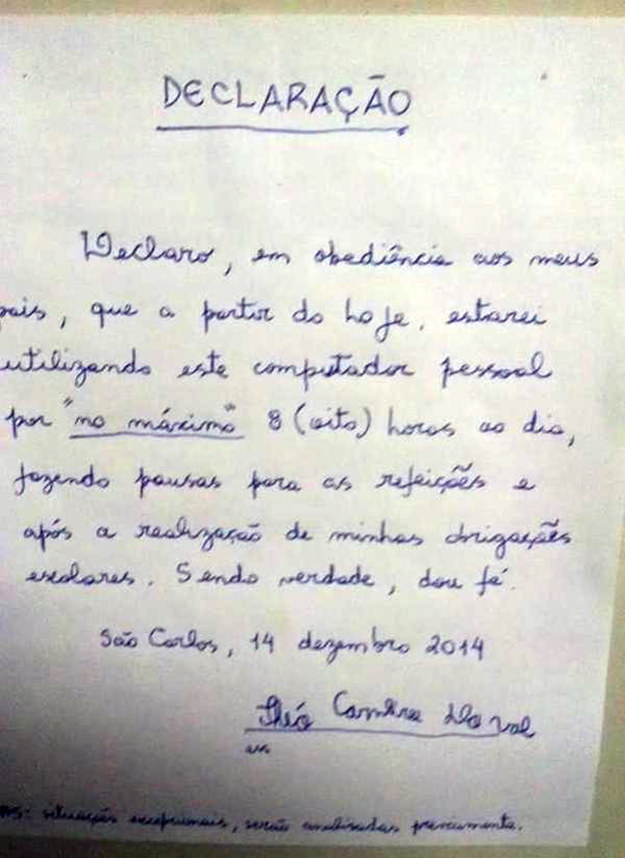 DECLARAÇÃO
Declaro, em obediência aos meus
pais, que a partir do hoje, estarei
utilizando este computador pessoal
por "no máximo" 8 (oito) horas ao dia,
fazendo pausas para as refeições e
após a realização de minhas obrigações
escolares. Sendo verdade, dou fé.
São Carlos, 14 dezembro 2014
Théo
situação excepcionais, serão analisadas previamente.